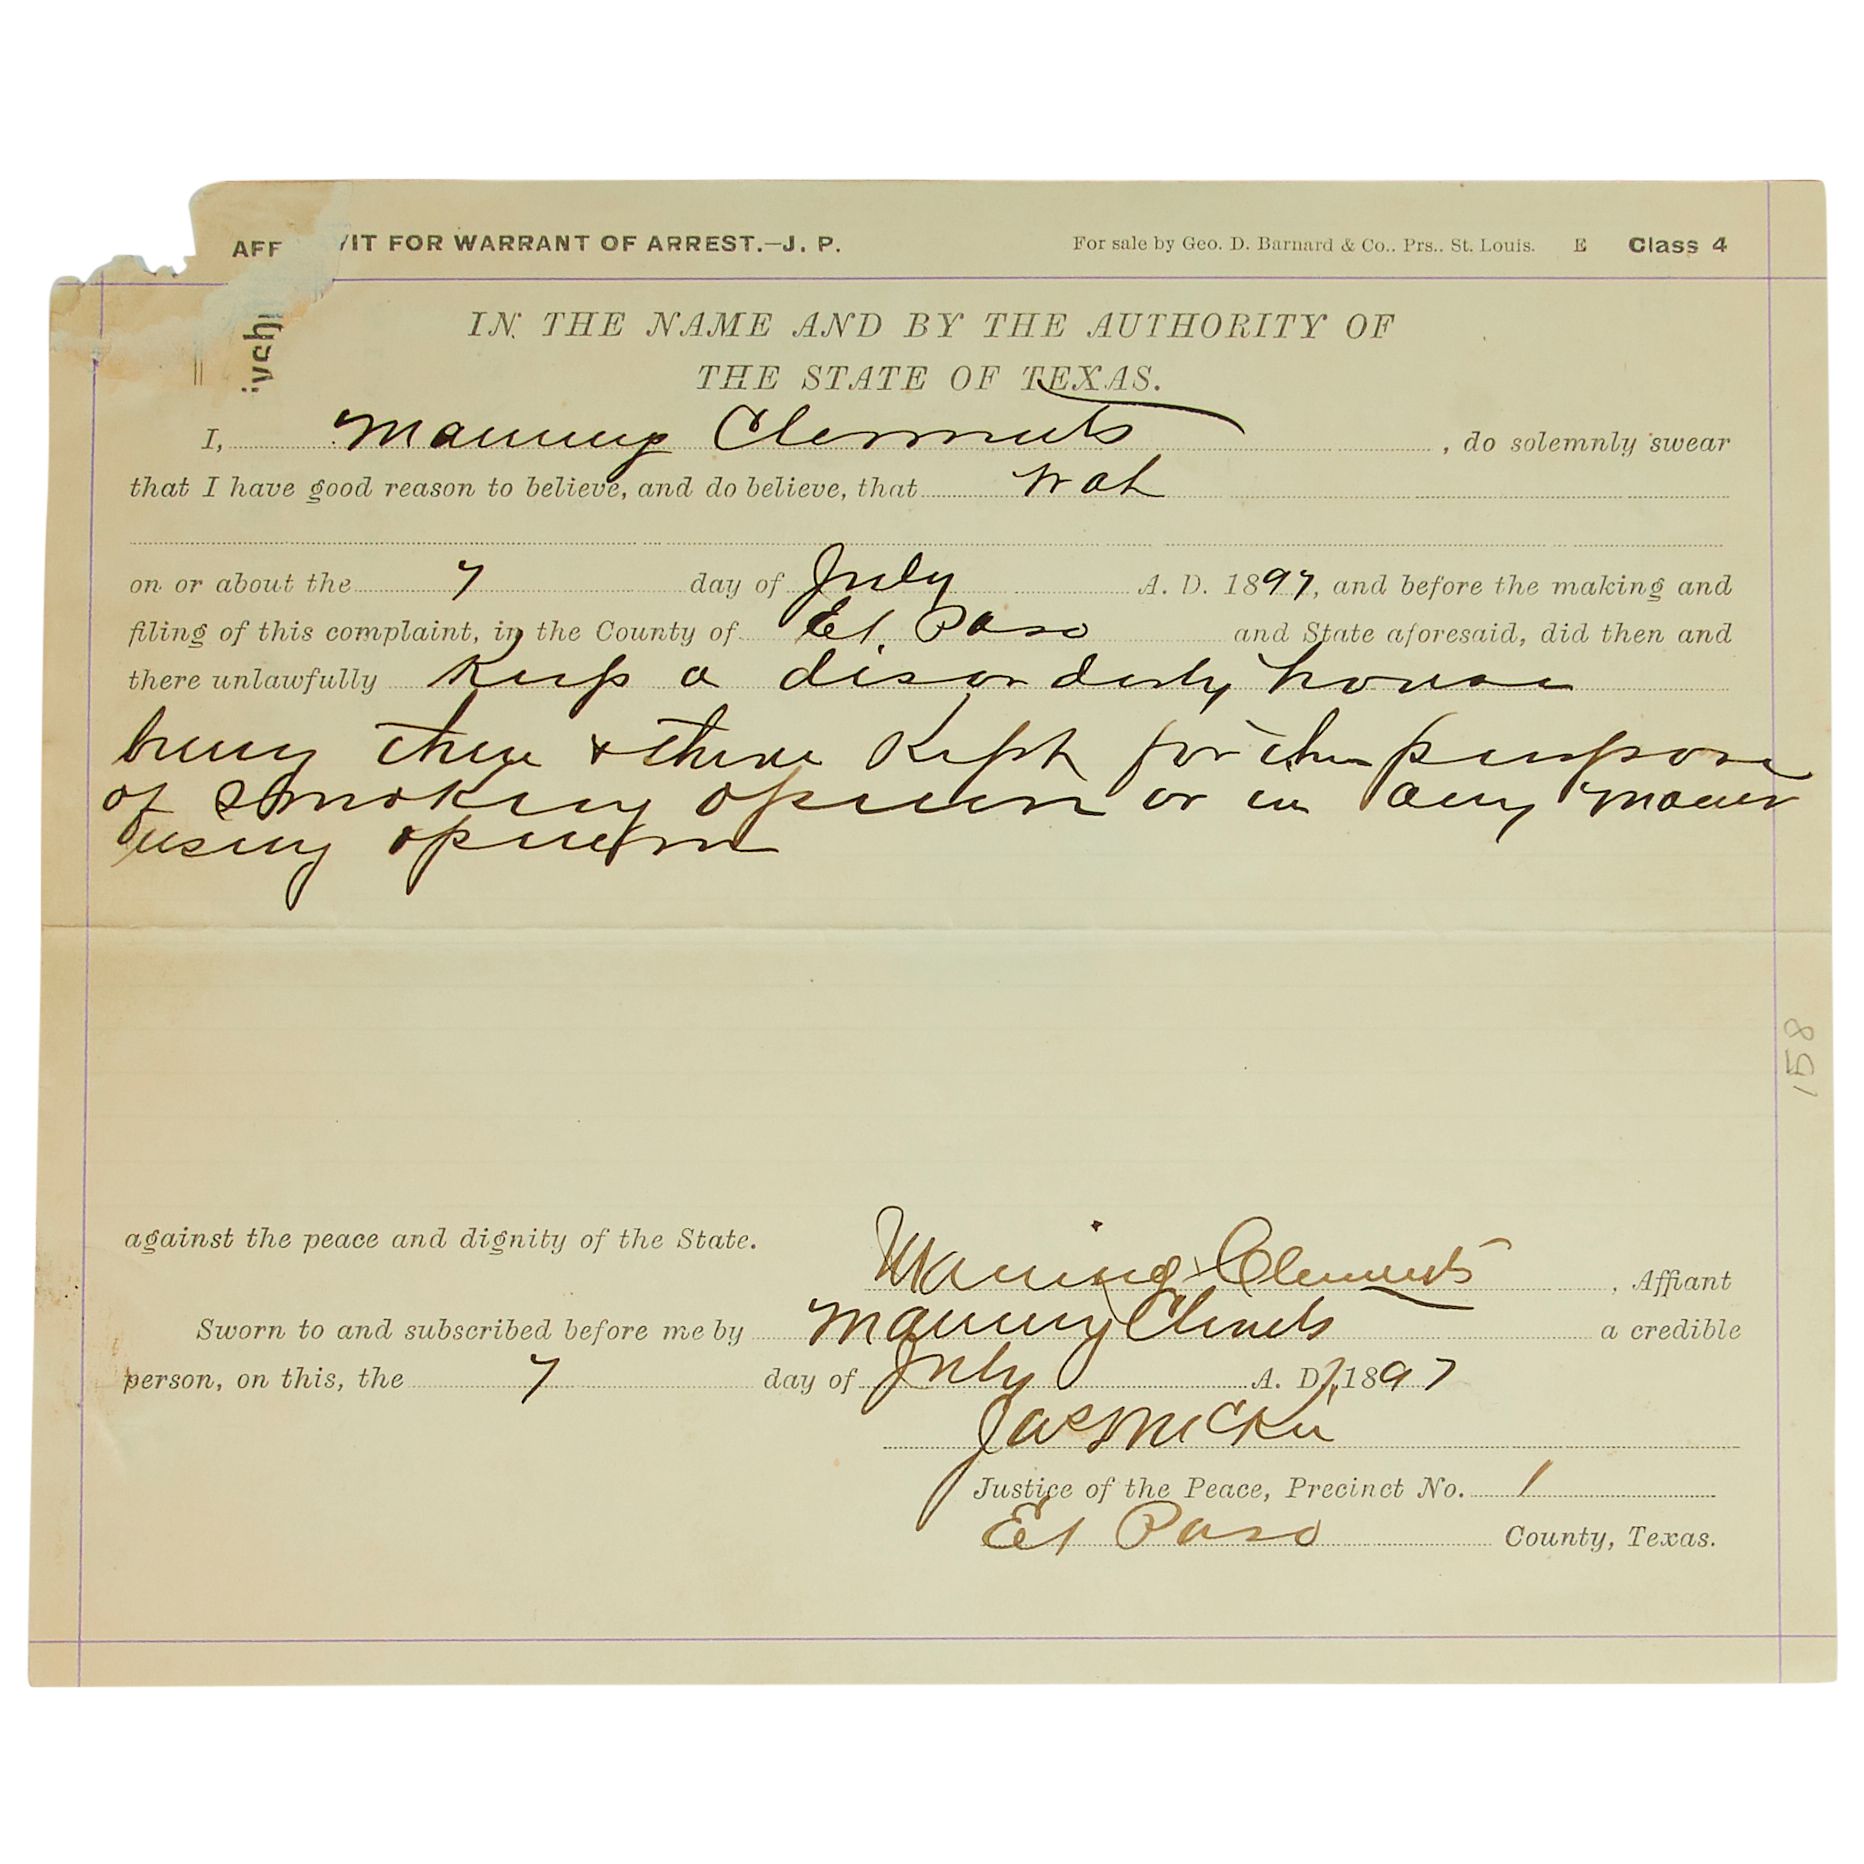 AFF VIT FOR WARRANT OF ARREST.—J. P. For sale by Geo. D. Barnard & Co., Prs., St. Louis. E Class 4
IN THE NAME AND BY THE AUTHORITY OF
THE STATE OF TEXAS.
I, Manning Clements, do solemnly swear
that I have good reason to believe, and do believe, that Wah
on or about the 7 day of July A. D. 1897, and before the making and
filing of this complaint, in the County of El Paso and State aforesaid, did then and
there unlawfully Keep a disorderly house
being then & there Kept for the purpose
of smoking opium or in any maner
using opium
158
against the peace and dignity of the State.
Maning Clements, Affiant
Sworn to and subscribed before me by Manning Clements a credible
person, on this, the 7 day of July A. D. 1897
Jas McKie
Justice of the Peace, Precinct No. 1
El Paso County, Texas.